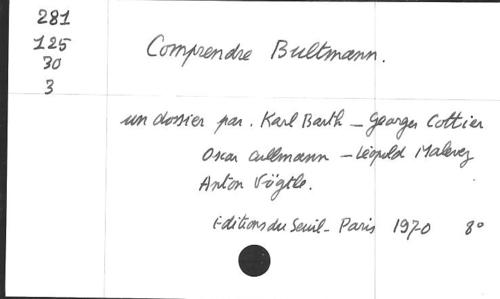 281
125
30
3
Comprendre Bultmann.
un dossier par. Karl Barth - Georges Cottier
Oscar Cullmann - Léopold Malevez
Anton Vögtle.
Editions du Seuil - Paris 1970 8°